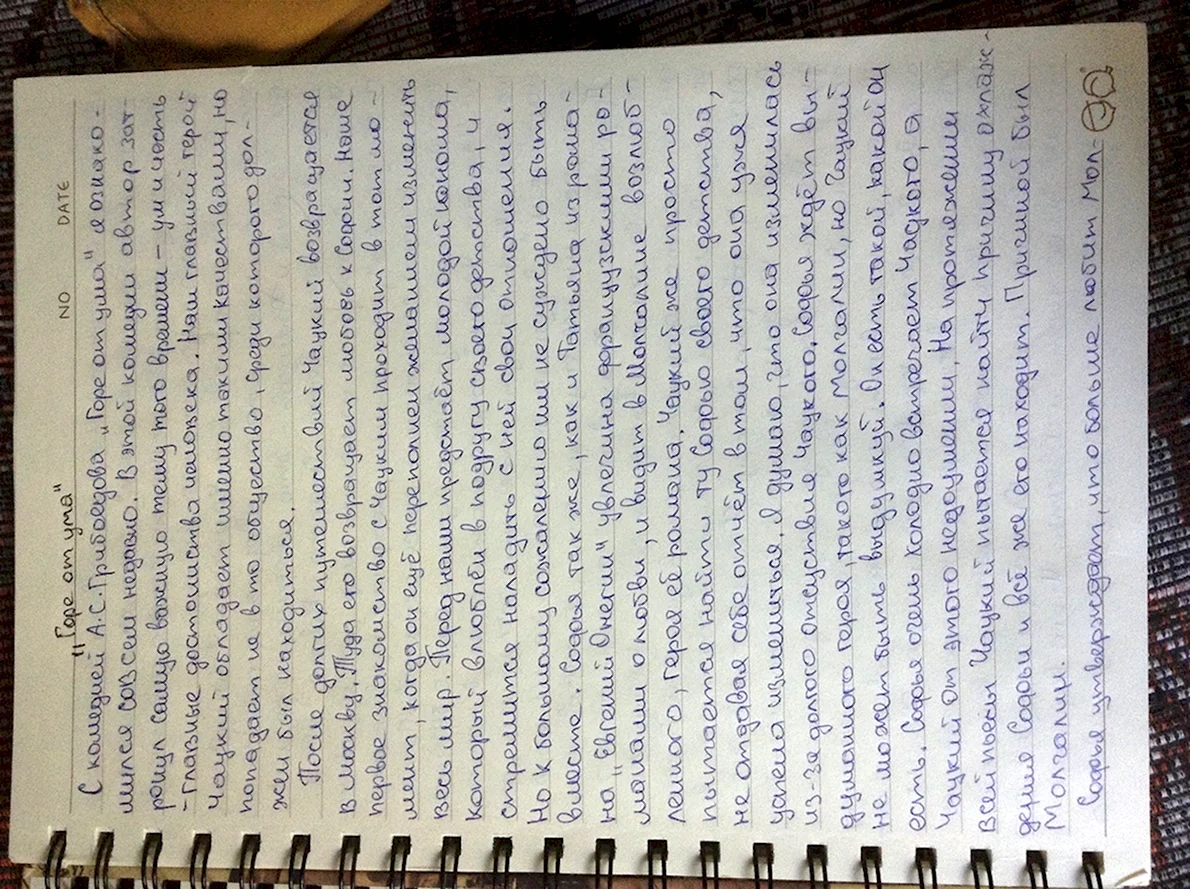 NO DATE
"Горе от ума"
С комедией А.С.Грибоедова "Горе от ума" я ознако-
мился совсем недавно. В этой комедии автор зат-
ронул самую важную тему того времени - ум и честь
- главные достоинства человека. Наш главный герой
Чацкий обладает именно такими качествами, но
попадает не в то общество, среди которого дол-
жен был находиться.
После долгих путешествий Чацкий возвращается
в Москву. Туда его возвращает любовь к Софьи. Наше
первое знакомство с Чацким проходит в тот мо-
мент, когда он ещё переполнен желанием изменить
весь мир. Перед нами предстаёт молодой юноша,
который влюблён в подругу своего детства, и
стремится наладить с ней свои отношения.
Но к большому сожалению им не суждено быть
вместе. Софья так же, как и Татьяна из рома-
на "Евгений Онегин" увлечина французскими ро-
манами о любви, и видит в Молчалине возлюб-
ленного, героя её романа. Чацкий же просто
пытается найти ту Софью своего детства,
не отдавая себе отчёт в том, что она уже
успела измениться. Я думаю, что она изменилась
из-за долгого отсуствия Чацкого. Софья ждёт вы-
думаного героя, такого как Молчалин, но Чацкий
не может быть выдумкой. Он есть такой, какой он
есть. Софья очень холодно встречает Чацкого, а
Чацкий от этого недоумении. На протяжении
всей пьесы Чацкий пытается найти причину охлаж-
дения Софьи и всё же его находит. Причиной был
Молчалин.
Софья утверждает, что больше любит Мол-